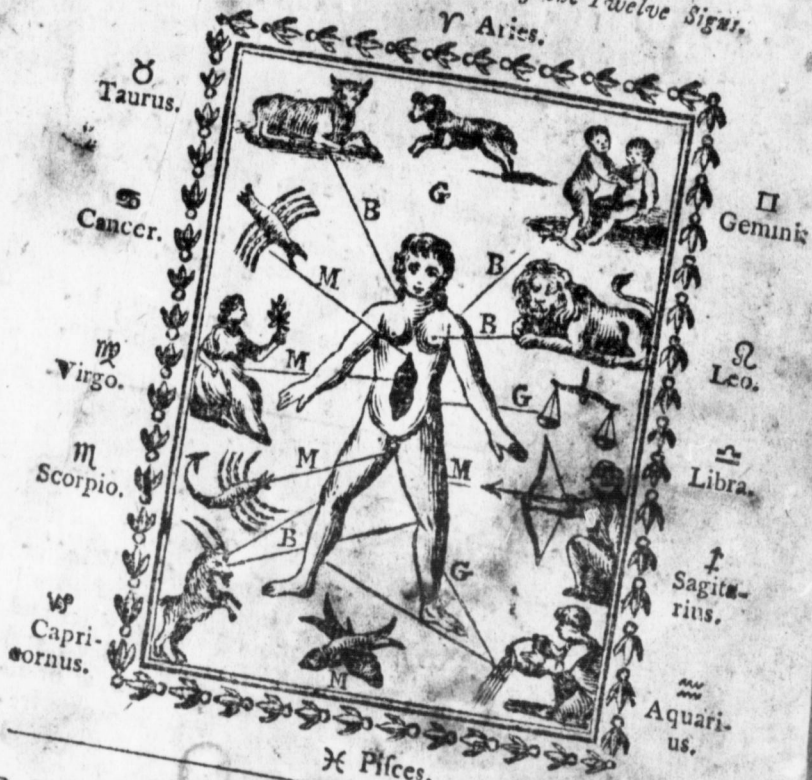 Twelve Signs.
♈ Aries.
♉
Taurus.
♋
Cancer.
♍
Virgo.
♏
Scorpio.
♑
Capri-
cornus.
♊
Gemini
♌
Leo.
♎
Libra.
♐
Sagita-
rius.
♒
Aquari-
us.
♓ Piſces.
B
G
M
B
B
M
G
M
M
B
G
M